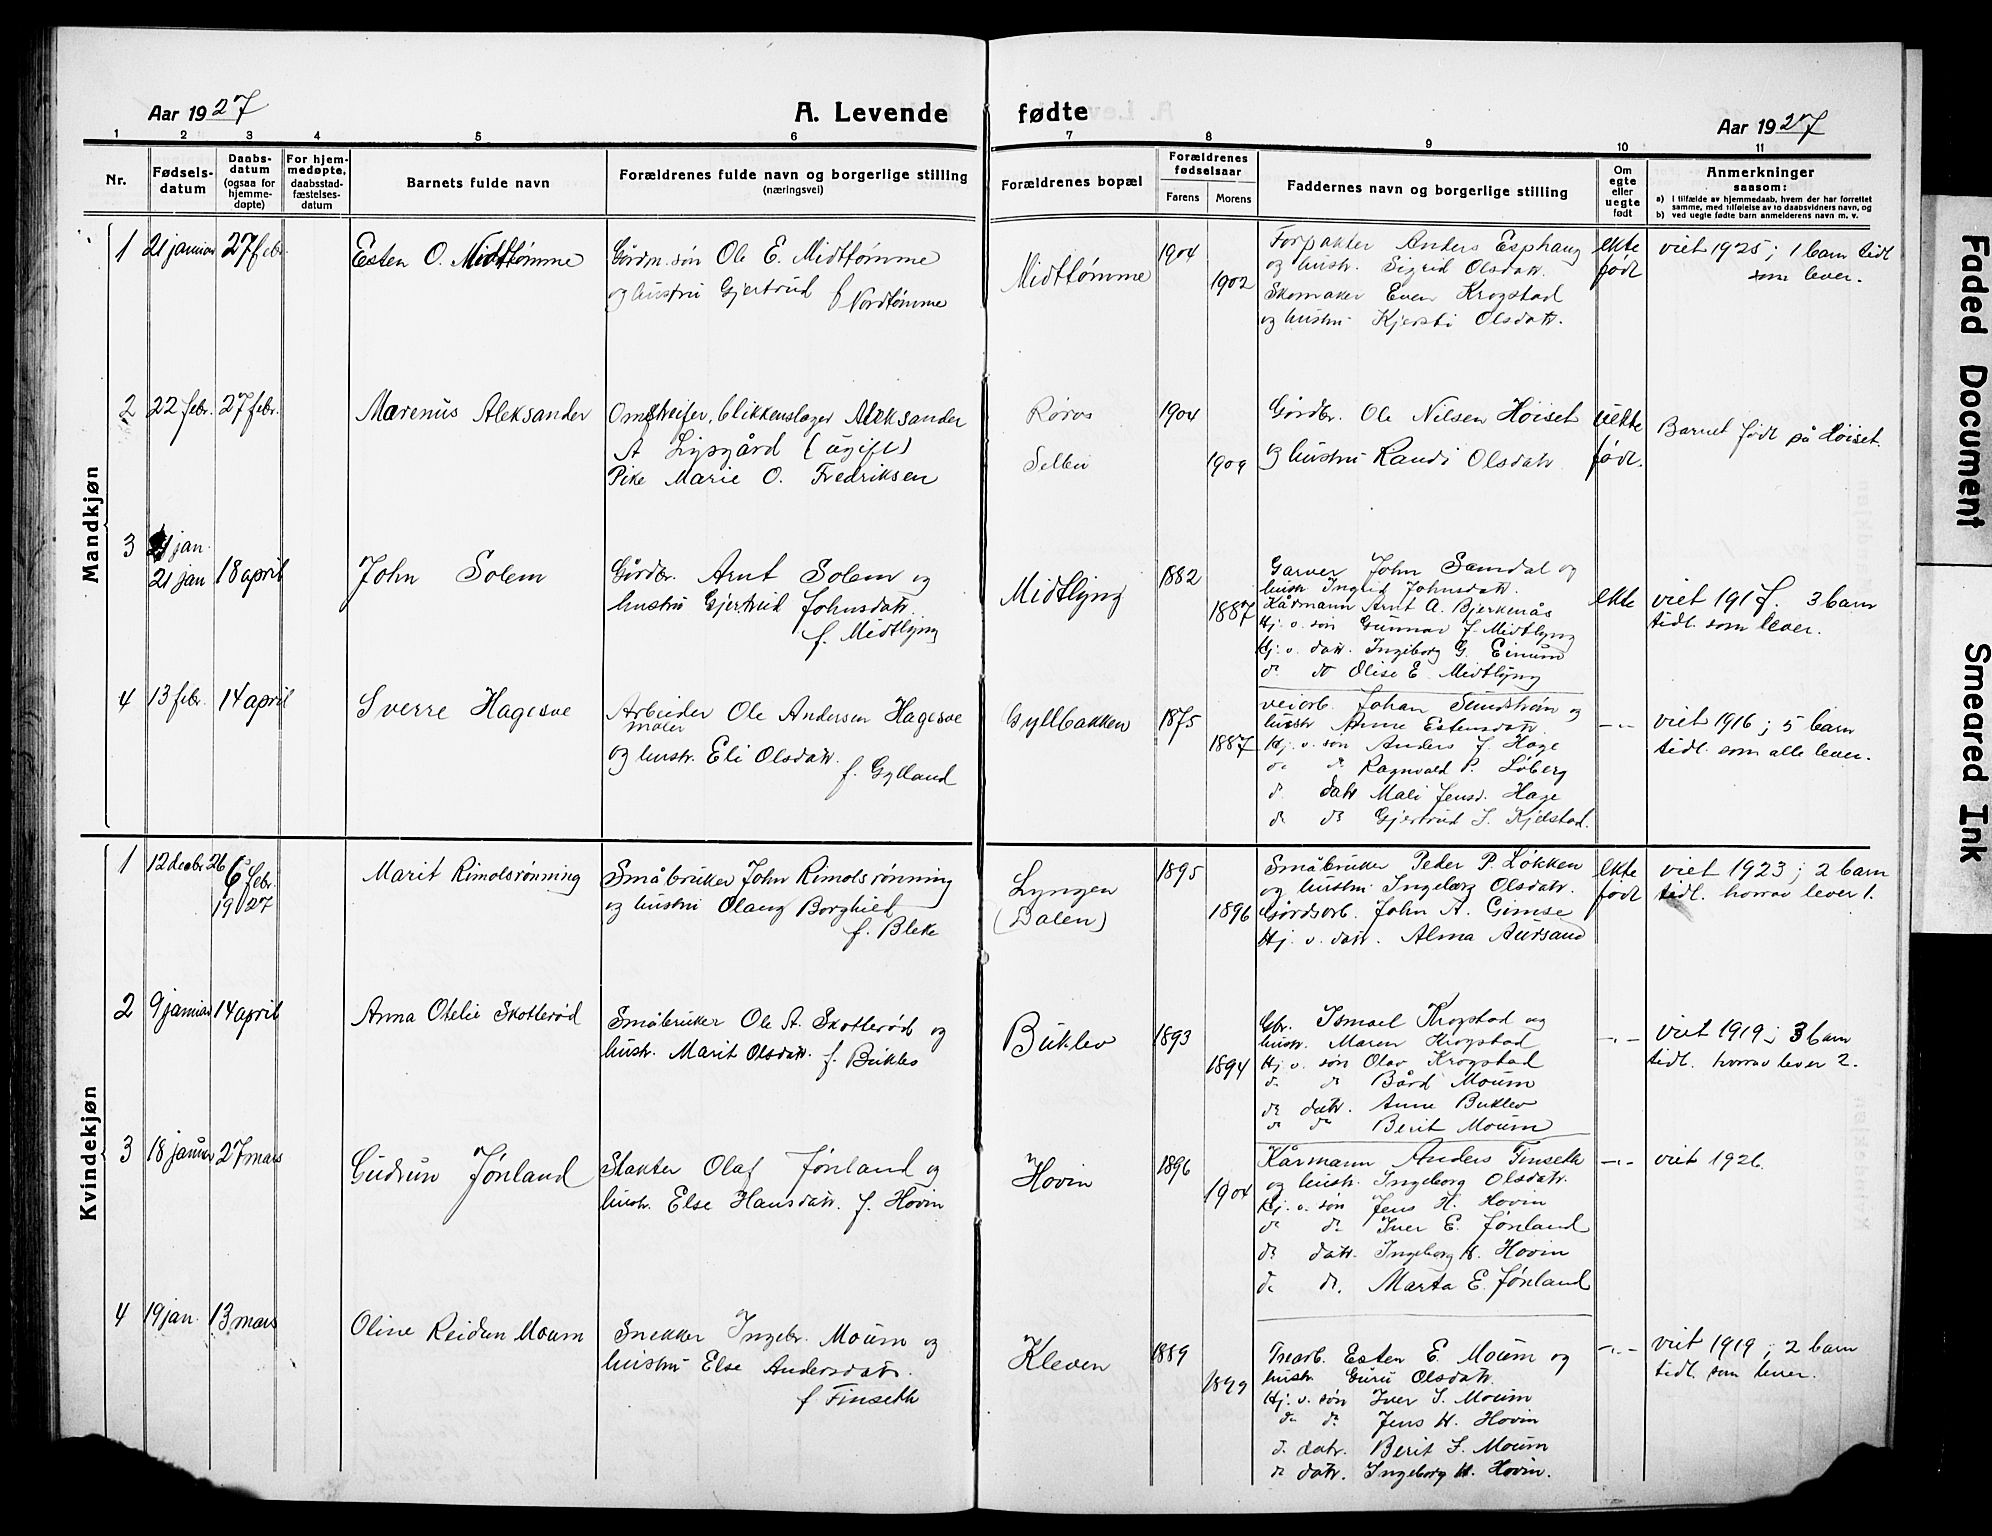 Aar 1927
A. Levende fødte
Aar 1927
1 2 3 4 5 6 7 8 9 10 11
Nr.
Fødsels-
datum
Daabs-
datum
(ogsaa for
hjemme-
døpte)
For hjem-
medøpte,
daabsstad-
fæstelses-
datum
Barnets fulde navn
Forældrenes fulde navn og borgerlige stilling
(næringsvei)
Forældrenes bopæl
Forældrenes
fødselsaar
Farens Morens
Faddernes navn og borgerlige stilling
Om
egte
eller
uegte
født
Anmerkninger
saasom:
a) I tilfælde av hjemmedaab, hvem der har forrettet
samme, med tilføielse av to daabsvidners navn, og
b) ved uegte fødte barn anmelderens navn m. v.
Mandkjøn
1 21 januar 27 febr.
Esten O. Midttømme
Gårdm. søn Ole E. Midttømme
og hustru Gjertrud f Nordtømme
Midttømme
1904
1902
Forpakter Anders Esphaug
og hustr. Sigrid Olsdatr.
Skomaker Even Krogstad
og hustru Kjersti Olsdatr.
ekte
født
viet 1925; 1 barn tidl
som lever.
2 22 febr. 27 febr.
Marenus Aleksander
Omstreifer, blikkenslager Aleksander
A Lysgård (ugift)
Pike Marie O. Fredriksen
Røros
Selbu
1904
1909
Gårdbr. Ole Nilsen Høiset
og hustru Randi Olsdatr
uekte
født.
Barnet født på Høiset.
3 21 jan.
21 jan 18 april
John Solem
Gårdbr. Arnt Solem og
hustru Gjertrud Johnsdatr.
f. Midtlyng
Midtlyng
1882
1887
Garver John Samdal og
hustr Ingrid Johnsdatr.
Kårmann Arnt A. Bjerkenås
Hj. v. søn Gunnar J. Midtlyng
Hj. v. datr. Ingeborg G. Einum
do do Olise E. Midtlyng
ekte
viet 1917. 3 barn
tidl. som lever.
4 13 febr. 14 april
Sverre Hagesve
Arbeider Ole Andersen Hagesve
maler
og hustr. Eli Olsdatr.
f. Gylland
Gyllbakken
1875
1887
veiarb. Johan Sundstrøm og
hustr Anne Estensdatr.
Hj. v. søn Anders J. Hage
do do Ragnvald P. Løberg
d. datr Mali Jensd. Hage
do do Gjertrud J. Kjelstad.
—„—
viet 1916; 5 barn
tidl. som alle lever.
Kvindekjøn
1 12 decbr 26 6 febr.
1927
Marit Rimolsrønning
Småbruker John Rimolsrønning
og hustru Olaug Borghild
f. Bleke
Lyngen
(Dalen)
1895
1896
Småbruker Peder P. Løkken
og hustru Ingeborg Olsdatr.
Gårdsarb. John A. Gimse
Hj. v. datr. Alma Aursand
ekte
født
viet 1923; 2 barn
tidl. hvorav lever 1.
2 9 januar 14 april
Anna Otelie Skotlerød
Småbruker Ole A. Skotlerød og
hustr. Marit Olsdatr. f. Buklev
Buklev
1893
1894
Gbr. Ismael Krogstad og
hustr. Maren Krogstad
Hj. v. søn Olav Krogstad
do do Bård Moum
do datr. Anne Buklev
do do Berit Moum
—„—
viet 1919; 3 barn
tidl. hvorav lever 2.
3 18 januar 27 mars
Gudrun Jønland
Slakter Olaf Jønland og
hustr. Else Hansdatr. f. Hovin
Hovin
1896
1904
Kårmann Anders Finseth
og hustr. Ingeborg Olsdatr.
Hj. v. søn Jens H. Hovin
do do Iver E. Jønland
do datr. Ingeborg H. Hovin
do do. Marta E. Jønland
—„—
viet 1926.
4 19 jan. 13 mars
Oline Reidun Moum
Snekker Ingebr. Moum og
hustru Else Andersdatr.
f Finseth
Kleven
1889
1899
Trearb. Esten E. Moum og
hustr Guru Olsdatr.
Hj. v. søn Iver S. Moum
do do Jens H. Hovin
d. datr. Berit J. Moum
do datr. Ingeborg H. Hovin.
—„—
viet 1919; 2 barn
tidl. som lever.
Faded Document
Smeared Ink